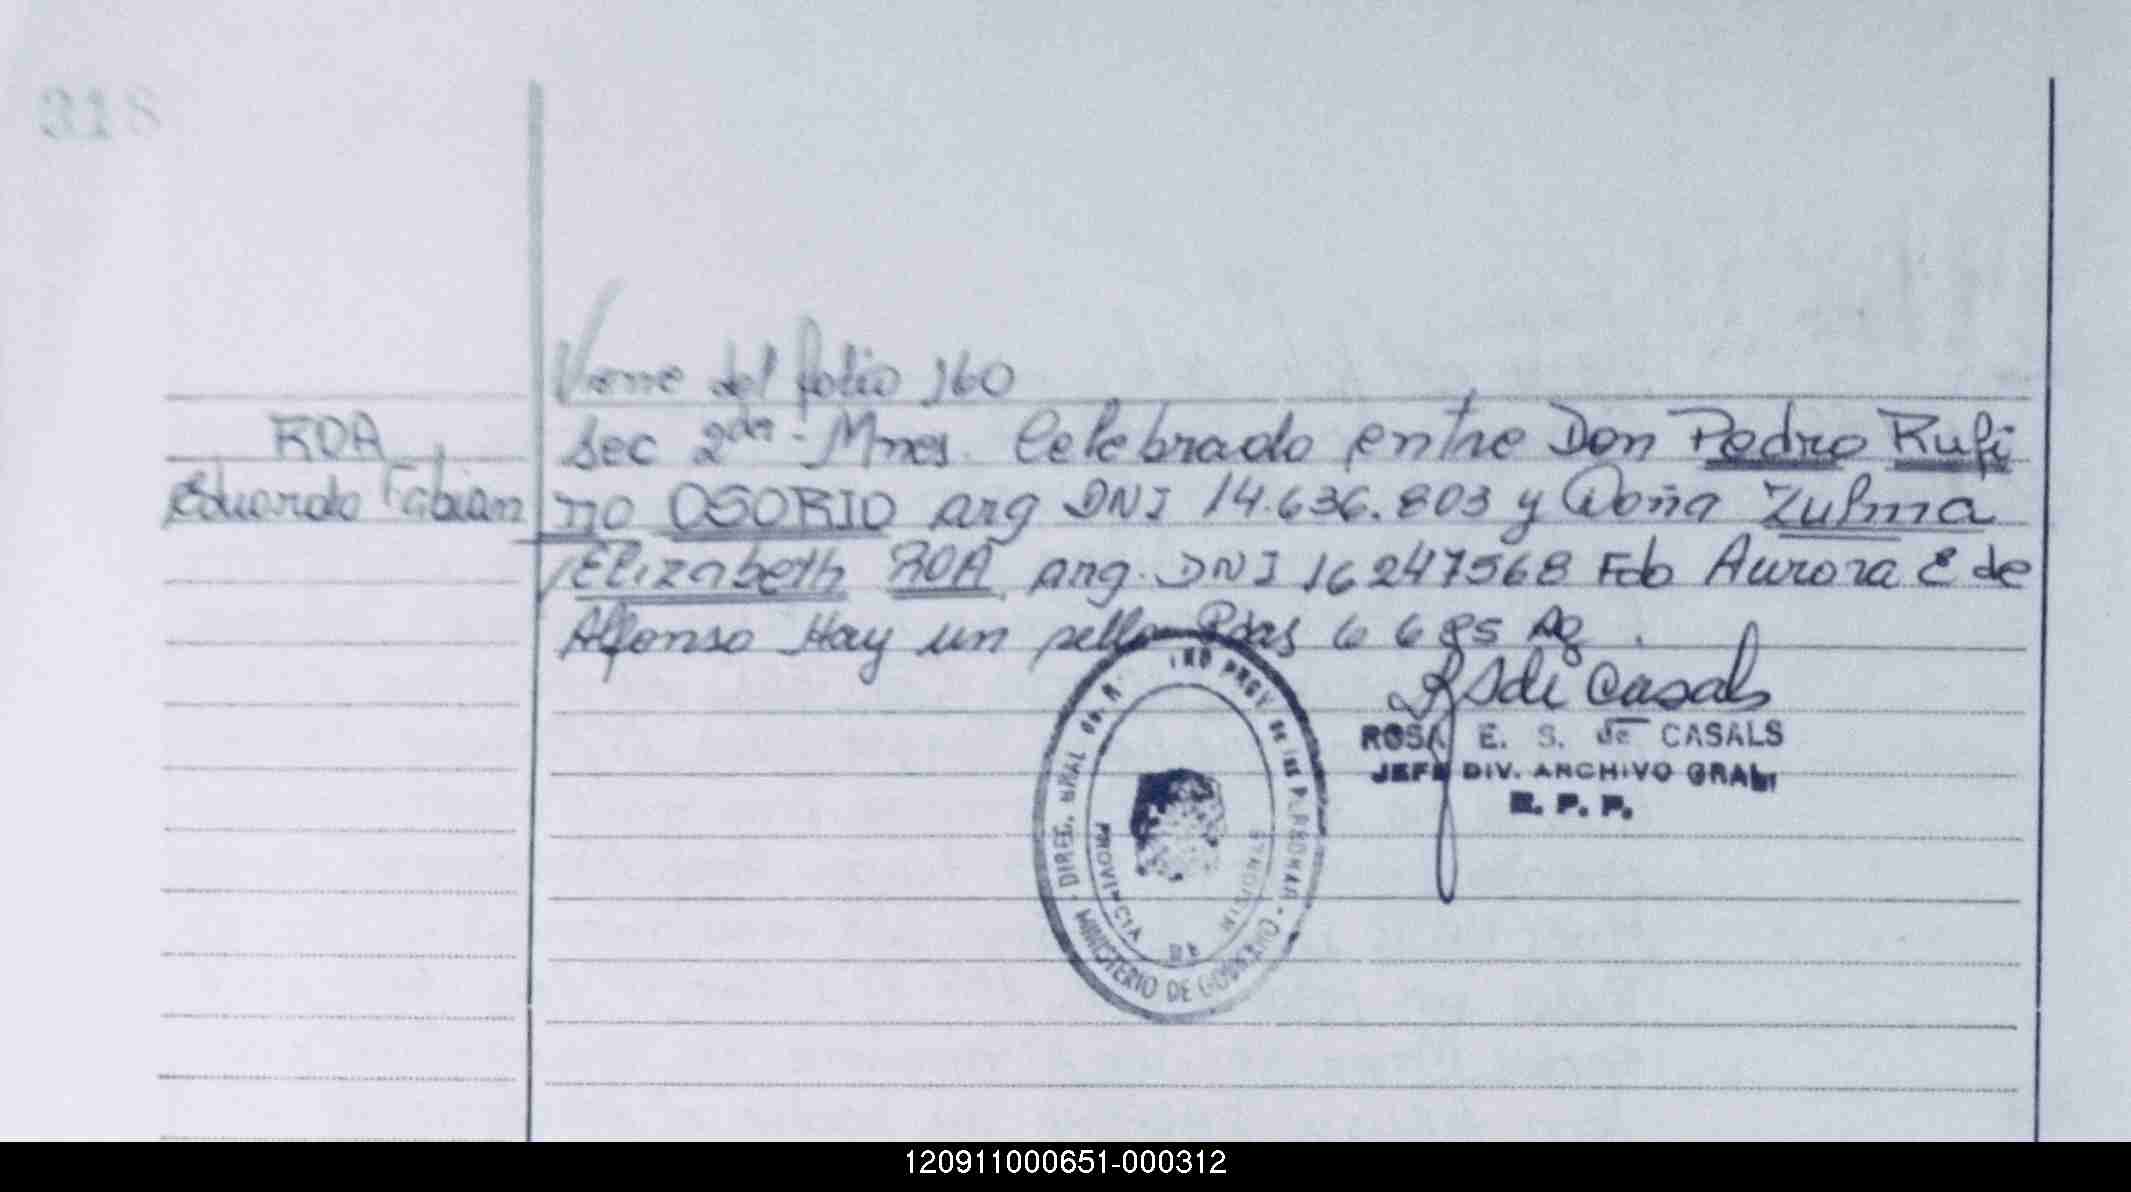 318
Viene del folio 160
ROA
Sec 2da - Mnes. Celebrado entre Don Pedro Rufi
Eduardo Fabian
no OSORIO arg DNI 14.636.803 y Doña Zulma
Elizabeth ROA arg. DNI 16247568 Fdo Aurora E de
Alfonso Hay un sello Pdas 6 6 85
DIREC. GRAL PROV. DE LAS PERSONAS
PROVINCIA DE MISIONES
MINISTERIO DE GOBIERNO
R S de Casals
ROSA E. S. de CASALS
JEFE DIV. ARCHIVO GRAL
R. P. P.
120911000651-000312